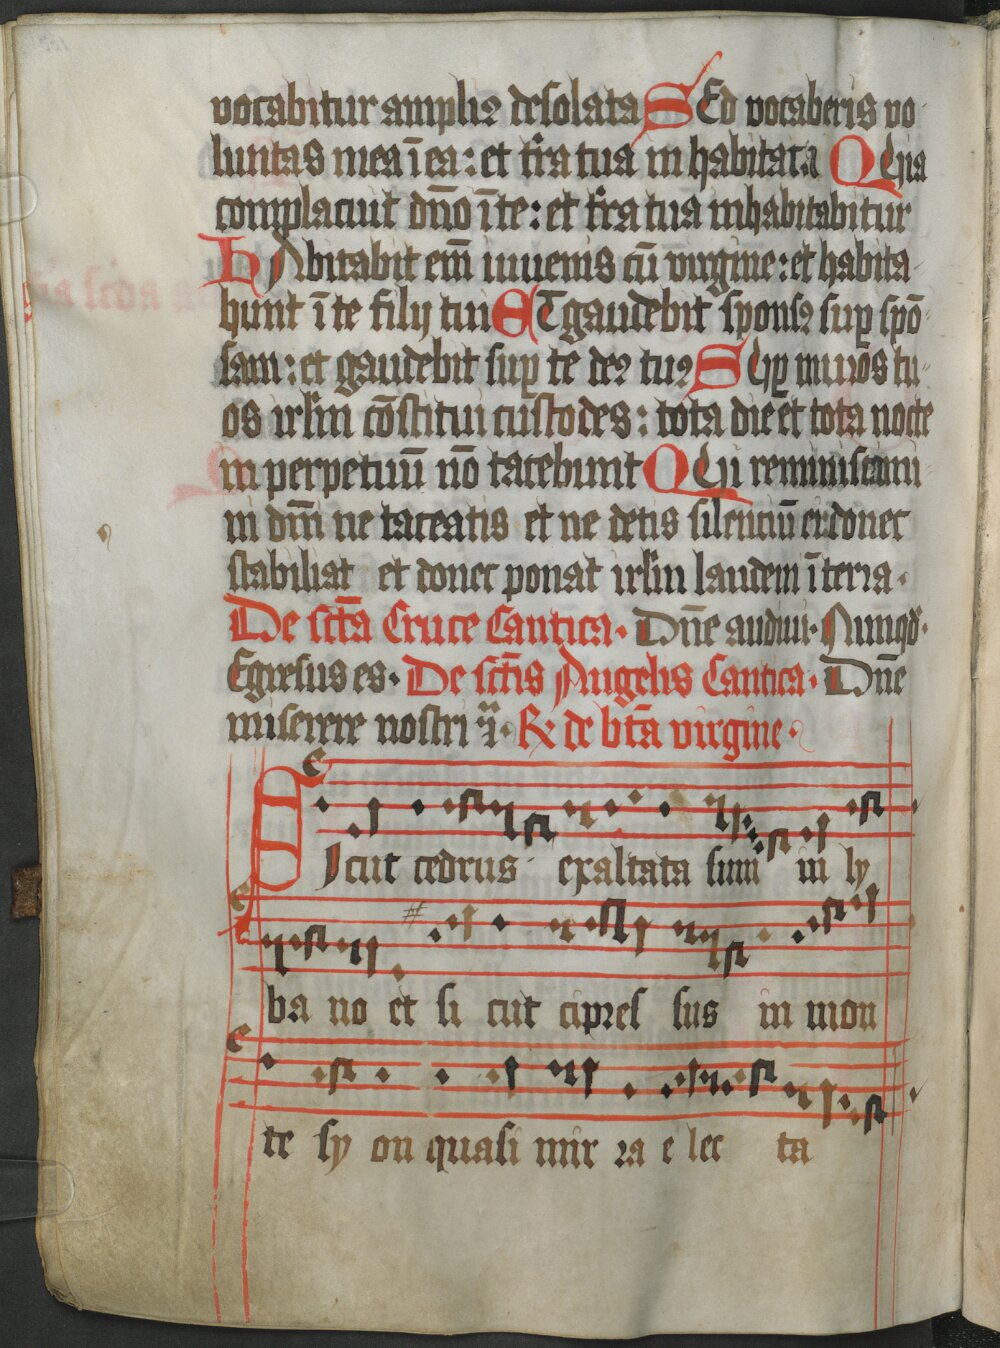 vocabitur ampliꝰ desolata SEd vocaberis vo
luntas mea ī ea: et t̄ra tua inhabitata QUia
complacuit dn̄o ī te: et t̄ra tua inhabitabitur
HAbitabit em̄ iuuenis cū virgine: et habita
bunt ī te filij tui ET gaudebit sponsꝰ suꝑ spō
sam: et gaudebit suꝑ te deꝰ tuꝰ SUꝑ muros tu
os irl̄m cōstitui custodes: tota die et tota nocte
in perpetuū nō tacebunt QUi reminiscimi
in dn̄m ne taceatis et ne detis silenciū ei: donec
stabiliat et donec ponat irl̄m laudem ī terra.
De sct̄a Cruce Cantica. Dn̄e audiui. Nūnqd̄.
Egressus es. De sct̄is Angelis Cantica. Dn̄e
miserere nostri. ℟ de bt̄a virgine.
SIcut cedrus exaltata sum in ly
ba no et si cut cipres sus in mon
te sy on quasi mir ra e lec ta